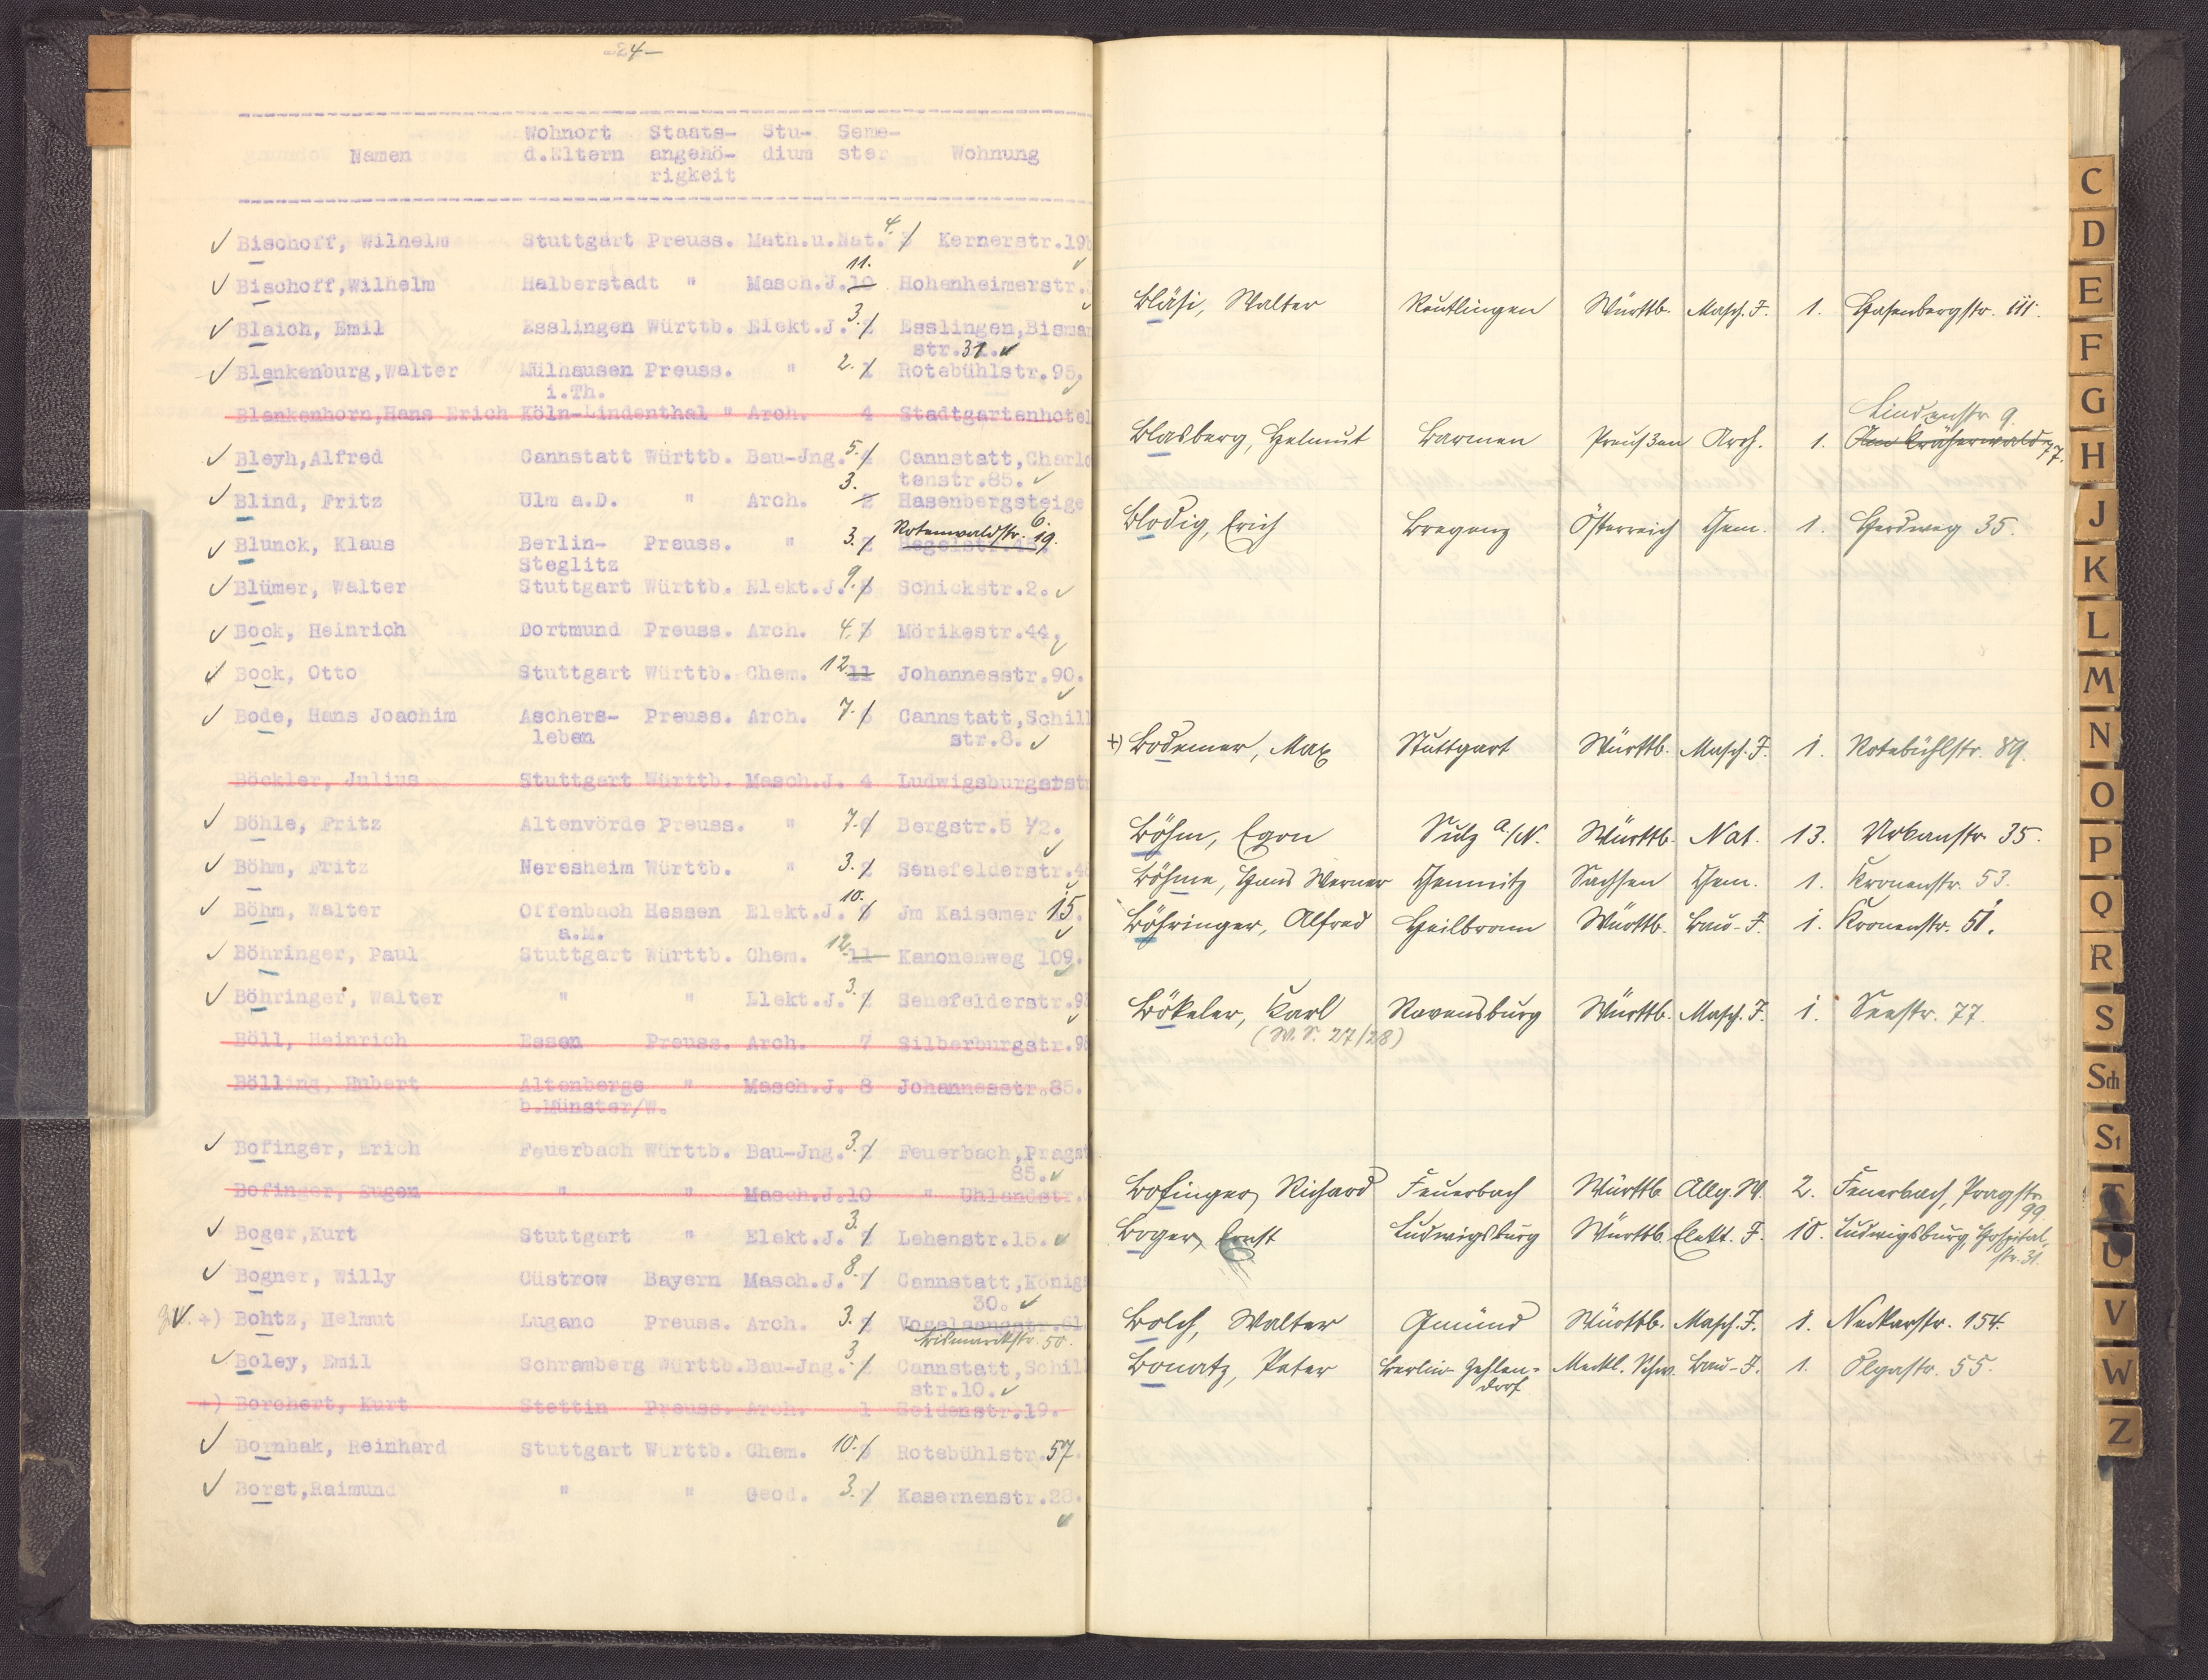 -24-
Wohnort Staats- Stu- Seme-
Namen d.Eltern angehö- dium ster Wohnung
rigkeit
Bischoff, Wilhelm Stuttgart Preuss. Math.u.Nat. 4. 3 Kernerstr.19
11.
Bischoff,Wilhelm Halberstadt " Masch.J. 10 Hohenheimerstr.
Blaich, Emil Esslingen Württb. Elekt.J. 3. 2 Esslingen,Bismar
str.31.
Blankenburg,Walter Mülhausen Preuss. " 2. 1 Rotebühlstr.95.
i.Th.
Blankenhorn,Hans Erich Köln-Lindenthal " Arch. 4 Stadtgartenhotel
Bleyh,Alfred Cannstatt Württb. Bau-Jng. 5. Cannstatt,Charlo
tenstr.85.
Blind, Fritz Ulm a.D. " Arch. 3. 2 Hasenbergsteige
Rotenwaldstr. 19. 6.
Blunck, Klaus Berlin- Preuss. " 3. 2
Steglitz
Blümer, Walter Stuttgart Württb. Elekt.J. 9. 8 Schickstr.2.
Bock, Heinrich Dortmund Preuss. Arch. 4. 3 Mörikestr.44.
Bock, Otto Stuttgart Württb. Chem. 12. 11 Johannesstr.90.
Bode, Hans Joachim Aschers- Preuss. Arch. 7. 6 Cannstatt,Schill
leben str.8.
Böckler, Julius Stuttgart Württb. Masch.J. 4 Ludwigsburgerstr
Böhle, Fritz Altenvörde Preuss. " 7. 6 Bergstr.5 1/2.
Böhm, Fritz Neresheim Württb. " 3. 2 Senefelderstr.4
10.
Böhm, Walter Offenbach Hessen Elekt.J. 9 Jm Kaisemer 15.
a.M.
Böhringer, Paul Stuttgart Württb. Chem. 12. 11 Kanonenweg 109.
Böhringer, Walter " " Elekt.J. 3. 2 Senefelderstr.9
Böll, Heinrich Essen Preuss. Arch. 7 Silberburgstr.9
Bölling, Hubert Altenberge " Masch.J. 8 Johannesstr.85.
b.Münster/W.
Bofinger, Erich Feuerbach Württb. Bau-Jng. 3. 2 Feuerbach,Pragst
85.
Bofinger, Eugen " " Masch.J.10 " Uhlandstr.
Boger,Kurt Stuttgart " Elekt.J. 3. 2 Lehenstr.15.
Bogner, Willy Güstrow Bayern Masch.J. 8. 7 Cannstatt,Königs
30.
+) Bohtz, Helmut Lugano Preuss. Arch. 3. 2 Vogelsangstr.61
Bismarckstr. 50.
Boley, Emil Schramberg Württb.Bau-Jng. 3. Cannstatt,Schil
str.10.
+) Borchert, Kurt Stettin Preuss. Arch. 1 Seidenstr.19.
Bornhak, Reinhard Stuttgart Württb. Chem. 10. 9 Rotebühlstr.57.
Borst,Raimund " " Geod. 3. 2 Kasernenstr.28.
Bläsi, Walter Reutlingen Württb. Masch. J. 1. Hasenbergstr. 111.
Lindenstr. 9.
Blasberg, Helmut Barmen Preußen Arch. 1. Am Kräherwald 77.
Blodig, Erich Bregenz Österreich Chem. 1. Herdweg 35.
+) Bodemer, Max Stuttgart Württb. Masch. J. 1. Rotebühlstr. 89.
Böhm, Egon Sulz a./N. Württb. Nat. 13. Urbanstr. 35.
Böhme, Hans Werner Chemnitz Sachsen Chem. 1. Kronenstr. 53.
Böhringer, Alfred Heilbronn Württb. Bau-J. 1. Kronenstr. 51.
Bökeler, Karl Ravensburg Württb. Masch. J. 1. Seestr. 77
(W.S. 27/28)
Bofinger, Richard Feuerbach Württb Allg. W. 2. Feuerbach, Pragstr
99.
Boger, Ernst Ludwigsburg Württb. Elekt. J. 10. Ludwigsburg, Hospital-
str. 31.
Bolch, Walter Gmünd Württb. Masch. J. 1. Neckarstr. 154.
Bonatz, Peter Berlin-Zehlen- Meckl. Schw. Bau-J. 1. Olgastr. 55.
dorf
C
D
E
F
G
H
J
K
L
M
N
O
P
Q
R
S
Sch
St
T
U
V
W
Z